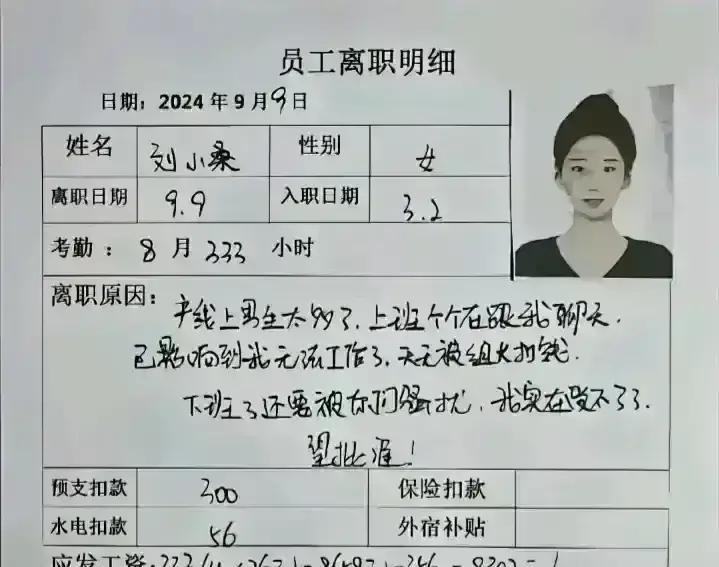 员工离职明细
日期：2024年9月9日
姓名 刘小桑 性别 女
离职日期 9.9 入职日期 3.2
考勤：8月333小时
离职原因：产线上男生太多了，上班个个在跟我聊天，
已影响到我无法工作了，天天被组长扣钱.
下班了还要被你们骚扰，我实在受不了了.
望批准！
预支扣款 300 保险扣款
水电扣款 56 外宿补贴
应发工资: